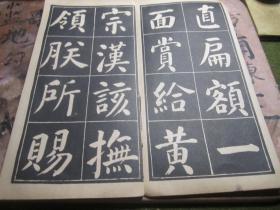 直扁額一
面賞給黄
宗漢該撫
領朕所賜